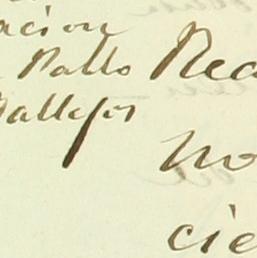 acion
Pablo Rea
Vallejos
no
cie